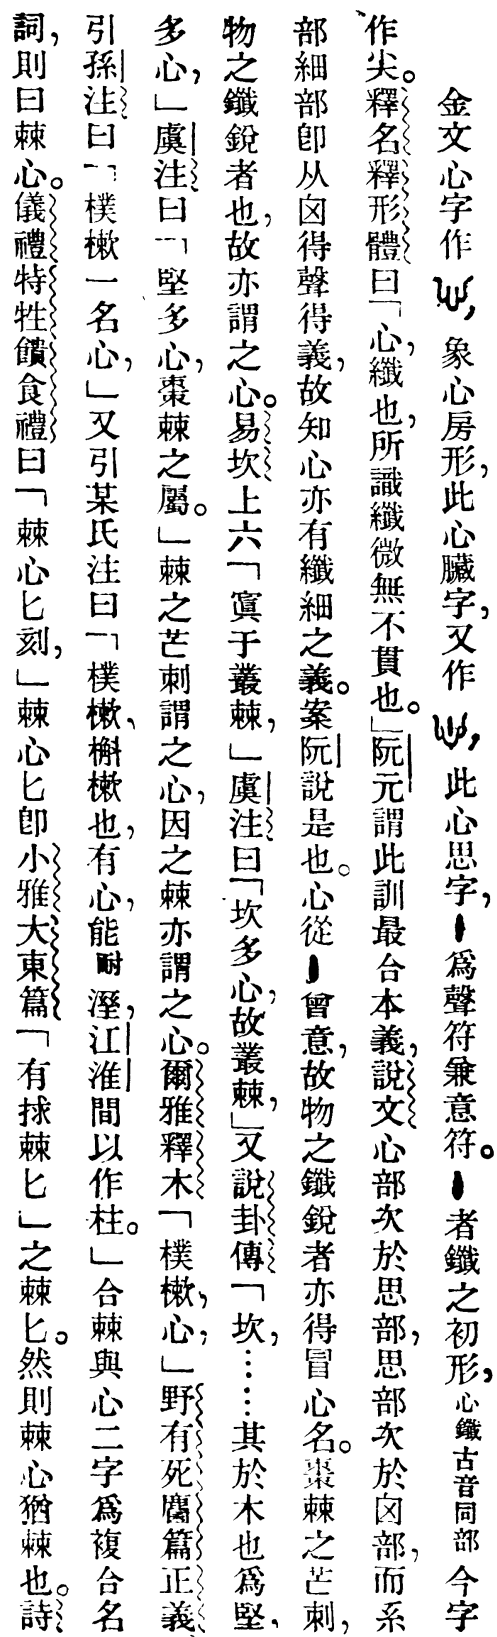 金文心字作，象心房形，此心臟字，又作，此心思字，爲聲符兼意符。者鑯之初形，心鑯古音同部今字
作尖。釋名釋形體曰「心，纖也，所識纖微無不貫也。」阮元謂此訓最合本義，說文心部次於思部，思部次於囟部，而糸
部細部卽从囟得聲得義，故知心亦有纖細之義。案阮說是也。心從曾意，故物之鑯銳者亦得冒心名。棗棘之芒刺，
物之鑯銳者也，故亦謂之心。易坎上六「寘于叢棘，」虞注曰「坎多心，故叢棘，」又說卦傳「坎，……其於木也爲堅，
多心，」虞注曰「堅多心，棗棘之屬。」棘之芒刺謂之心，因之棘亦謂之心。爾雅釋木「樸樕，心，」野有死麕篇正義
引孫注曰「樸樕一名心，」又引某氏注曰「樸樕，槲樕也，有心，能耐溼，江淮間以作柱。」合棘與心二字爲複合名
詞，則曰棘心。儀禮特牲饋食禮曰「棘心匕刻，」棘心匕卽小雅大東篇「有捄棘匕」之棘匕。然則棘心猶棘也。詩